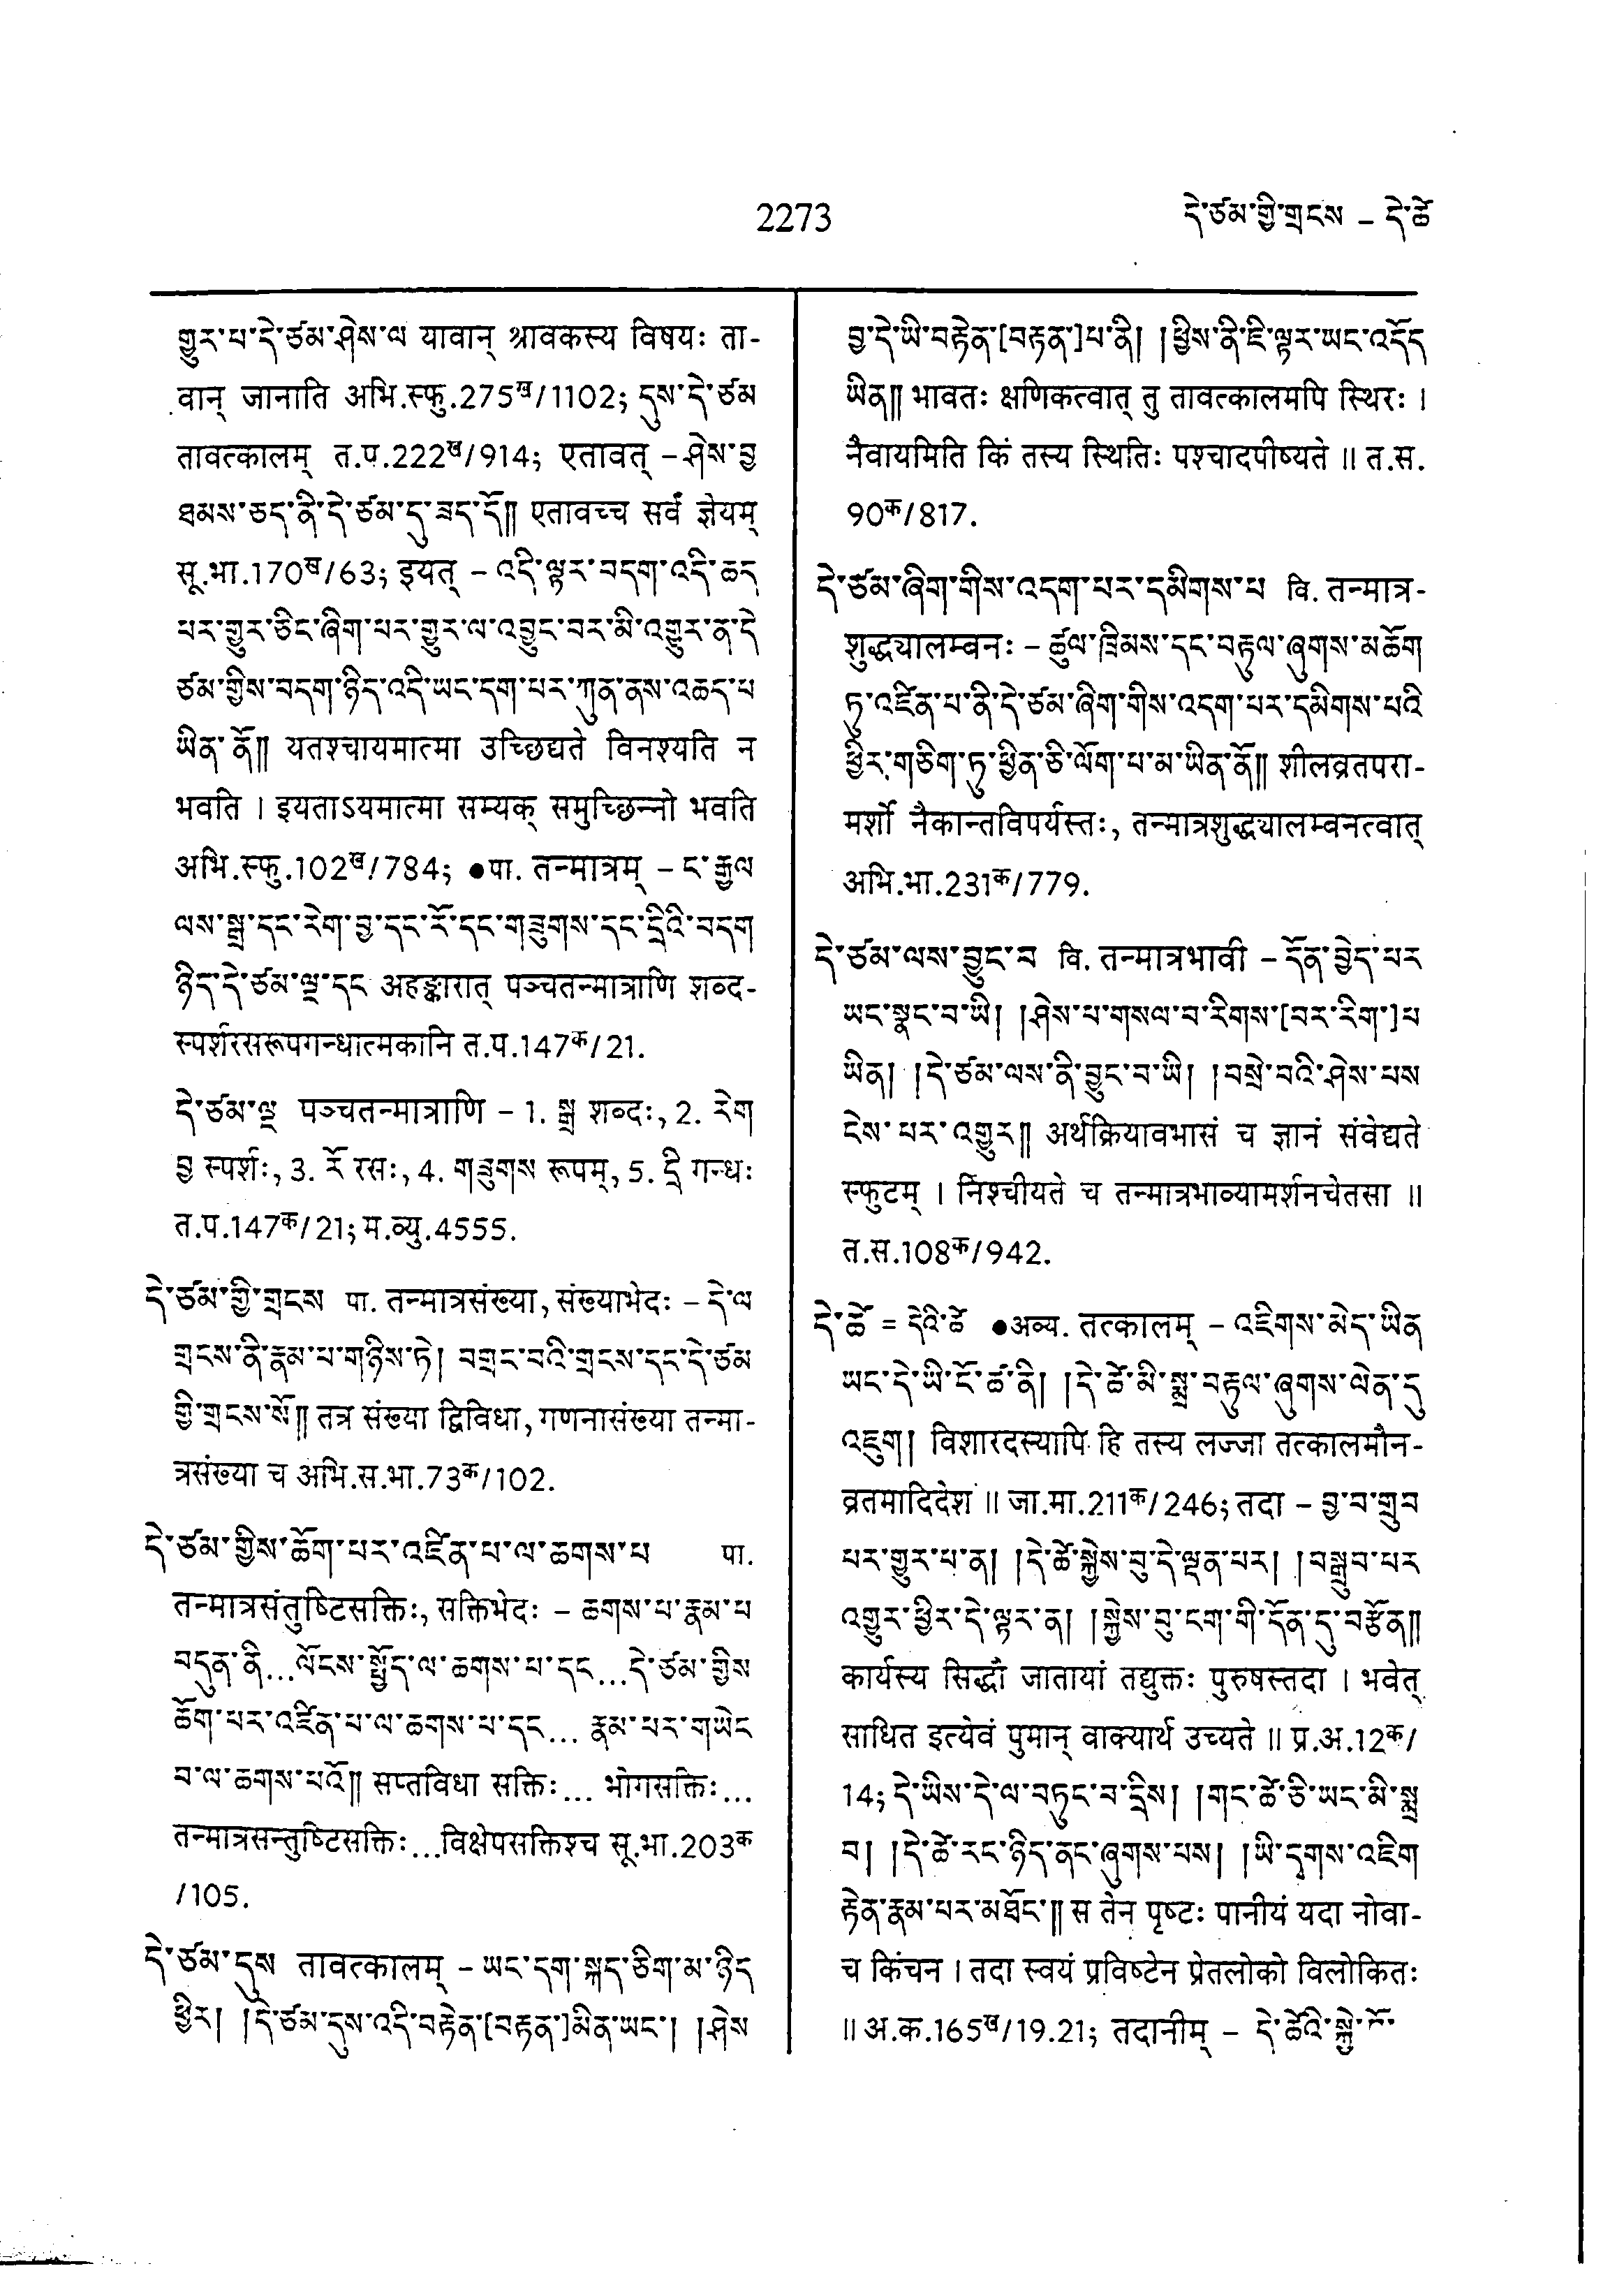 2273
དེ་ཙམ་གྱི་གྲངས – དེ་ཚེ
གྱུར་པ་དེ་ཙམ་ཤེས་ལ यावान् श्रावकस्य विषयः ता-
वान् जानाति अभि.स्फु.275ख/1102; དུས་དེ་ཙམ
तावत्कालम् त.प.222ख/914; एतावत् – ཤེས་བྱ
ཐམས་ཅད་ནི་དེ་ཙམ་དུ་ཟད་དོ༎ एतावच्च सर्वं ज्ञेयम्
सू.भा.170ख/63; इयत् – འདི་ལྟར་བདག་འདི་ཆད
པར་གྱུར་ཅིང་ཞིག་པར་གྱུར་ལ་འབྱུང་བར་མི་འགྱུར་ན་དེ
ཙམ་གྱིས་བདག་ཉིད་འདི་ཡང་དག་པར་ཀུན་ནས་འཆད་པ
ཡིན་ནོ༎ यतश्चायमात्मा उच्छिद्यते विनश्यति न
भवति । इयताऽयमात्मा सम्यक् समुच्छिन्नो भवति
अभि.स्फु.102ख/784; ●पा. तन्मात्रम् – ང་རྒྱལ
ལས་སྒྲ་དང་རེག་བྱ་དང་རོ་དང་གཟུགས་དང་དྲིའི་བདག
ཉིད་དེ་ཙམ་ལྔ་དང अहङ्कारात् पञ्चतन्मात्राणि शब्द-
स्पर्शरसरूपगन्धात्मकानि त.प.147क/21.
དེ་ཙམ་ལྔ पञ्चतन्मात्राणि – 1. སྒྲ शब्दः, 2. རེག
བྱ स्पर्शः, 3. རོ रसः, 4. གཟུགས रूपम्, 5. དྲི गन्धः
त.प.147क/21; म.व्यु.4555.
དེ་ཙམ་གྱི་གྲངས पा. तन्मात्रसंख्या, संख्याभेदः – དེ་ལ
གྲངས་ནི་རྣམ་པ་གཉིས་ཏེ། བགྲང་བའི་གྲངས་དང་དེ་ཙམ
གྱི་གྲངས་སོ༎ तत्र संख्या द्विविधा, गणनासंख्या तन्मा-
त्रसंख्या च अभि.स.भा.73क/102.
དེ་ཙམ་གྱིས་ཆོག་པར་འཛིན་པ་ལ་ཆགས་པ पा.
तन्मात्रसंतुष्टिसक्तिः, सक्तिभेदः – ཆགས་པ་རྣམ་པ
བདུན་ནི...ལོངས་སྤྱོད་ལ་ཆགས་པ་དང...དེ་ཙམ་གྱིས
ཆོག་པར་འཛིན་པ་ལ་ཆགས་པ་དང... རྣམ་པར་གཡེང
བ་ལ་ཆགས་པའོ༎ सप्तविधा सक्तिः... भोगसक्तिः...
तन्मात्रसन्तुष्टिसक्तिः...विक्षेपसक्तिश्च सू.भा.203क
/105.
དེ་ཙམ་དུས तावत्कालम् – ཡང་དག་སྐད་ཅིག་མ་ཉིད
ཕྱིར། །དེ་ཙམ་དུས་འདི་བརྟེན་[བརྟན་]མིན་ཡང་། །ཤེས
བྱ་དེ་ཡི་བརྟེན་[བརྟན་]པ་ནི། །ཕྱིས་ནི་ཇི་ལྟར་ཡང་འདོད
ཡིན༎ भावतः क्षणिकत्वात् तु तावत्कालमपि स्थिरः ।
नैवायमिति किं तस्य स्थितिः पश्चादपीष्यते ॥ त.स.
90क/817.
དེ་ཙམ་ཞིག་གིས་འདག་པར་དམིགས་པ वि. तन्मात्र-
शुद्ध्यालम्बनः – ཚུལ་ཁྲིམས་དང་བརྟུལ་ཞུགས་མཆོག
ཏུ་འཛིན་པ་ནི་དེ་ཙམ་ཞིག་གིས་འདག་པར་དམིགས་པའི
ཕྱིར་གཅིག་ཏུ་ཕྱིན་ཅི་ལོག་པ་མ་ཡིན་ནོ༎ शीलव्रतपरा-
मर्शो नैकान्तविपर्यस्तः, तन्मात्रशुद्ध्यालम्बनत्वात्
अभि.भा.231क/779.
དེ་ཙམ་ལས་བྱུང་བ वि. तन्मात्रभावी – དོན་བྱེད་པར
ཡང་སྣང་བ་ཡི། །ཤེས་པ་གསལ་བ་རིགས་[བར་རིག་]པ
ཡིན། །དེ་ཙམ་ལས་ནི་བྱུང་བ་ཡི། །བསྲེ་བའི་ཤེས་པས
ངེས་པར་འགྱུར༎ अर्थक्रियावभासं च ज्ञानं संवेद्यते
स्फुटम् । निश्चीयते च तन्मात्रभाव्यामर्शनचेतसा ॥
त.स.108क/942.
དེ་ཚེ = དེའི་ཚེ ●अव्य. तत्कालम् – འཇིགས་མེད་ཡིན
ཡང་དེ་ཡི་ངོ་ཚ་ནི། །དེ་ཚེ་མི་སྨྲ་བརྟུལ་ཞུགས་ལེན་དུ
འཇུག། विशारदस्यापि हि तस्य लज्जा तत्कालमौन-
व्रतमादिदेश ॥ जा.मा.211क/246; तदा – བྱ་བ་གྲུབ
པར་གྱུར་པ་ན། །དེ་ཚེ་སྐྱེས་བུ་དེ་ལྡན་པར། །བསྒྲུབ་པར
འགྱུར་ཕྱིར་དེ་ལྟར་ན། །སྐྱེས་བུ་ངག་གི་དོན་དུ་བརྩོན༎
कार्यस्य सिद्धौ जातायां तद्युक्तः पुरुषस्तदा । भवेत्
साधित इत्येवं पुमान् वाक्यार्थ उच्यते ॥ प्र.अ.12क/
14; དེ་ཡིས་དེ་ལ་བཏུང་བ་དྲིས། །གང་ཚེ་ཅི་ཡང་མི་སྨྲ
བ། །དེ་ཚེ་རང་ཉིད་ནང་ཞུགས་པས། །ཡི་དྭགས་འཇིག
རྟེན་རྣམ་པར་མཐོང་༎ स तेन पृष्टः पानीयं यदा नोवा-
च किंचन । तदा स्वयं प्रविष्टेन प्रेतलोको विलोकितः
॥ अ.क.165ख/19.21; तदानीम् – དེ་ཚེའི་སྐྱེ་བོ་